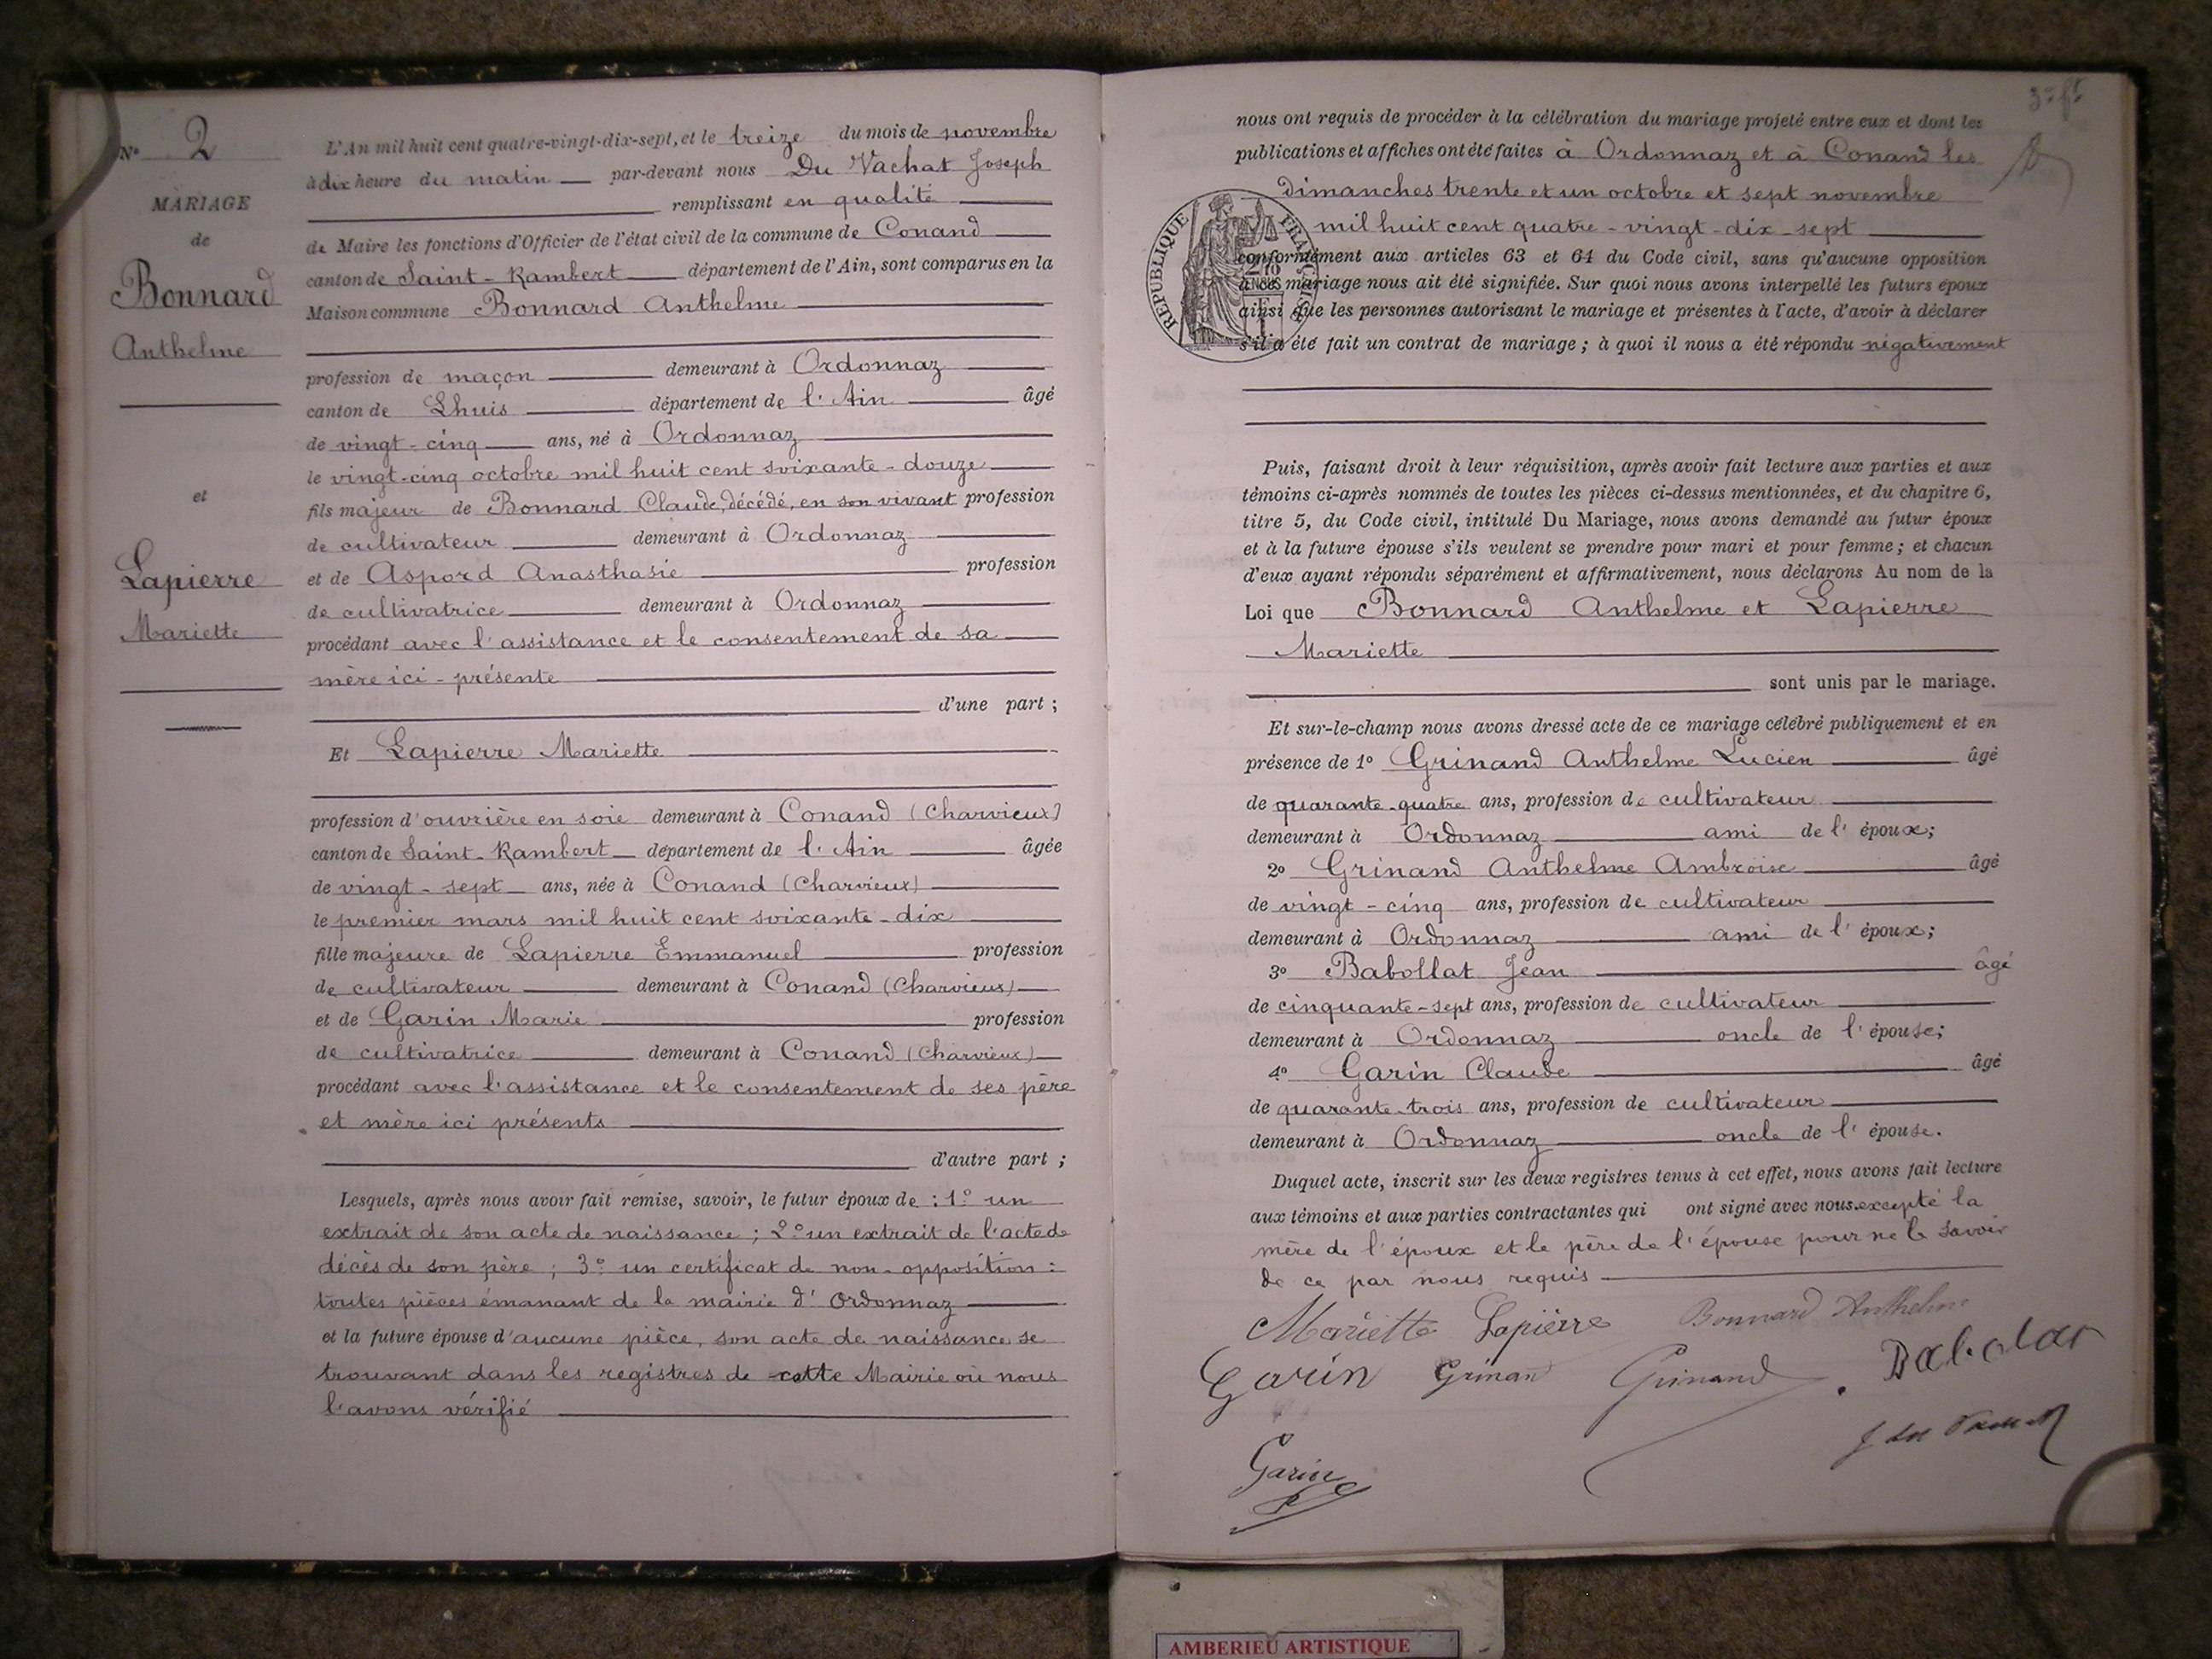 N° 2
MARIAGE
de
Bonnard
Anthelme
et
Lapierre
Mariette
L'An mil huit cent quatre-vingt-dix-sept, et le treize du mois de novembre
à dix heure du matin par-devant nous Du Vachat Joseph
remplissant en qualité
de Maire les fonctions d'Officier de l'état civil de la commune de Conand
canton de Saint-Rambert département de l'Ain, sont comparus en la
Maison commune Bonnard Anthelme
profession de maçon demeurant à Ordonnaz
canton de Lhuis département de l'Ain âgé
de vingt-cinq ans, né à Ordonnaz
le vingt-cinq octobre mil huit cent soixante-douze
fils majeur de Bonnard Claude, décédé, en son vivant profession
de cultivateur demeurant à Ordonnaz
et de Aspord Anasthasie profession
de cultivatrice demeurant à Ordonnaz
procédant avec l'assistance et le consentement de sa
mère ici-présente
d'une part ;
Et Lapierre Mariette
profession d'ouvrière en soie demeurant à Conand (Charvieux)
canton de Saint-Rambert département de l'Ain âgée
de vingt-sept ans, née à Conand (Charvieux)
le premier mars mil huit cent soixante-dix
fille majeure de Lapierre Emmanuel profession
de cultivateur demeurant à Conand (Charvieux)
et de Garin Marie profession
de cultivatrice demeurant à Conand (Charvieux)
procédant avec l'assistance et le consentement de ses père
et mère ici présents
d'autre part ;
Lesquels, après nous avoir fait remise, savoir, le futur époux de : 1° un
extrait de son acte de naissance ; 2° un extrait de l'acte de
décès de son père ; 3° un certificat de non-opposition :
toutes pièces émanant de la mairie d'Ordonnaz
et la future épouse d'aucune pièce, son acte de naissance se
trouvant dans les registres de cette Mairie où nous
l'avons vérifié
nous ont requis de procéder à la célébration du mariage projeté entre eux et dont les
publications et affiches ont été faites à Ordonnaz et à Conand les
dimanches trente et un octobre et sept novembre
mil huit cent quatre-vingt-dix-sept
RÉPUBLIQUE FRANÇAISE
conformément aux articles 63 et 64 du Code civil, sans qu'aucune opposition
à ce mariage nous ait été signifiée. Sur quoi nous avons interpellé les futurs époux
ainsi que les personnes autorisant le mariage et présentes à l'acte, d'avoir à déclarer
s'il a été fait un contrat de mariage ; à quoi il nous a été répondu négativement
Puis, faisant droit à leur réquisition, après avoir fait lecture aux parties et aux
témoins ci-après nommés de toutes les pièces ci-dessus mentionnées, et du chapitre 6,
titre 5, du Code civil, intitulé Du Mariage, nous avons demandé au futur époux
et à la future épouse s'ils veulent se prendre pour mari et pour femme ; et chacun
d'eux ayant répondu séparément et affirmativement, nous déclarons Au nom de la
Loi que Bonnard Anthelme et Lapierre
Mariette
sont unis par le mariage.
Et sur-le-champ nous avons dressé acte de ce mariage célébré publiquement et en
présence de 1° Grinand Anthelme Lucien âgé
de quarante-quatre ans, profession de cultivateur
demeurant à Ordonnaz ami de l'époux;
2° Grinand Anthelme Ambroise âgé
de vingt-cinq ans, profession de cultivateur
demeurant à Ordonnaz ami de l'époux;
3° Babollat Jean âgé
de cinquante-sept ans, profession de cultivateur
demeurant à Ordonnaz oncle de l'épouse;
4° Garin Claude âgé
de quarante-trois ans, profession de cultivateur
demeurant à Ordonnaz oncle de l'épouse.
Duquel acte, inscrit sur les deux registres tenus à cet effet, nous avons fait lecture
aux témoins et aux parties contractantes qui ont signé avec nous excepté la
mère de l'époux et le père de l'épouse pour ne le savoir
de ce par nous requis
Mariette Lapierre Bonnard Anthelme
Garin Grinand Grinand Babolat
Garin
AMBERIEU ARTISTIQUE